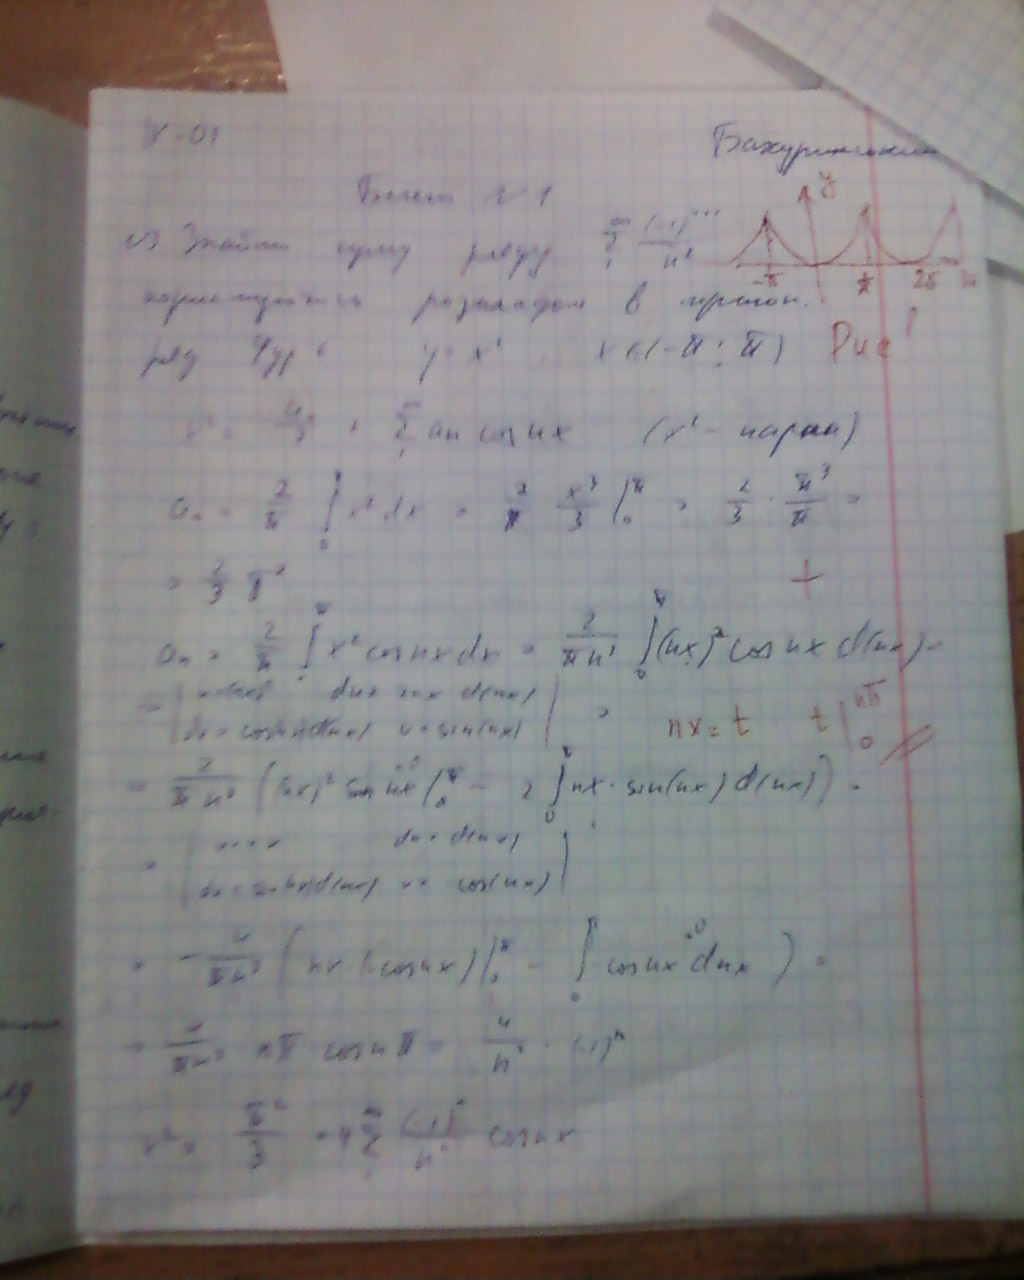 Білет № 1
Знайти суму ряду \sum_{1}^{\infty} \frac{(-1)^{n+1}}{n^2}
користуючись розкладом в тригон.
ряд Фур'є y = x^2 x ∈ (-π; π) Рис 1
y
-π π 2π 3π
x^2 = \frac{a_0}{2} + \sum_{1}^{\infty} a_n cos nx (x^2 - парна)
a_0 = \frac{2}{π} \int_0^π x^2 dx = \frac{2}{π} \frac{x^3}{3} |_0^π = \frac{2}{3} · \frac{π^3}{π} =
= \frac{2}{3} π^2 +
a_n = \frac{2}{π} \int_0^π x^2 cos nx dx = \frac{2}{π n^3} \int_0^π (nx)^2 cos nx d(nx) =
dv = cos(nx)d(nx) v = sin(nx) nx = t t |_0^{nπ}
= \frac{2}{π n^3} ( (nx)^2 sin nx |_0^π - 2 \int_0^π nx · sin(nx) d(nx) ) =
du = d(nx)
dv = sin(nx)d(nx) v = cos(nx)
= - \frac{4}{π n^3} ( nx (-cos nx) |_0^π - \int_0^π cos nx dnx ) =
= \frac{4}{π n^3} nπ cos nπ = \frac{4}{n^2} · (-1)^n
x^2 = \frac{π^2}{3} + 4 \sum_{1}^{\infty} \frac{(-1)^n}{n^2} cos nx